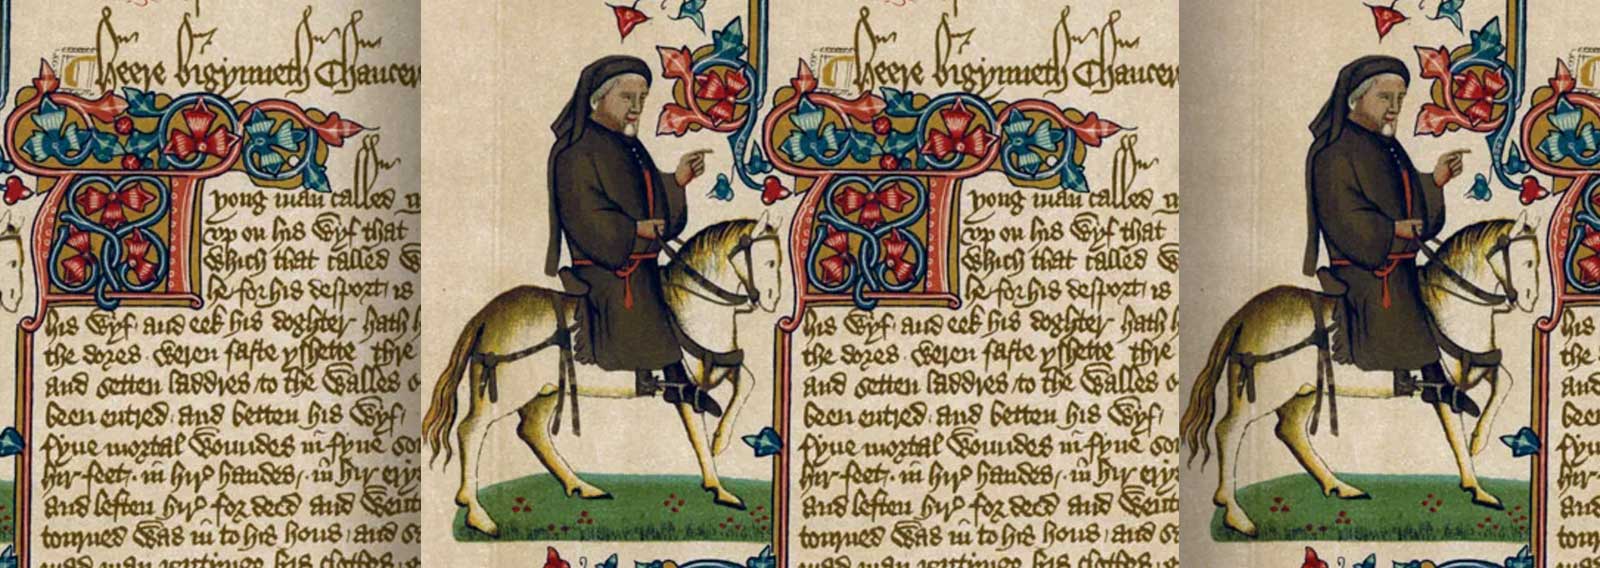 Heere bigynneth Chaucer
A yong man called
vp on his Wyf that
Which that called
he for his desport is
his Wyf and eek his doghter hath
the dores weren faste yshette Thre
and setten laddres to the Walles
been entred and betten his Wyf
fyue mortal Woundes in fyue
hir feet in hir handes in hir erys
and leften hir for deed and Went
torned Was in to his hous and
mad man rentinge his clothes
Heere bigynneth Chaucer
A yong man called
vp on his Wyf that
Which that called
he for his desport is
his Wyf and eek his doghter hath
the dores weren faste yshette Thre
and setten laddres to the Walles
been entred and betten his Wyf
fyue mortal Woundes in fyue
hir feet in hir handes in hir erys
and leften hir for deed and Went
torned Was in to his hous and
mad man rentinge his clothes
his
the
and